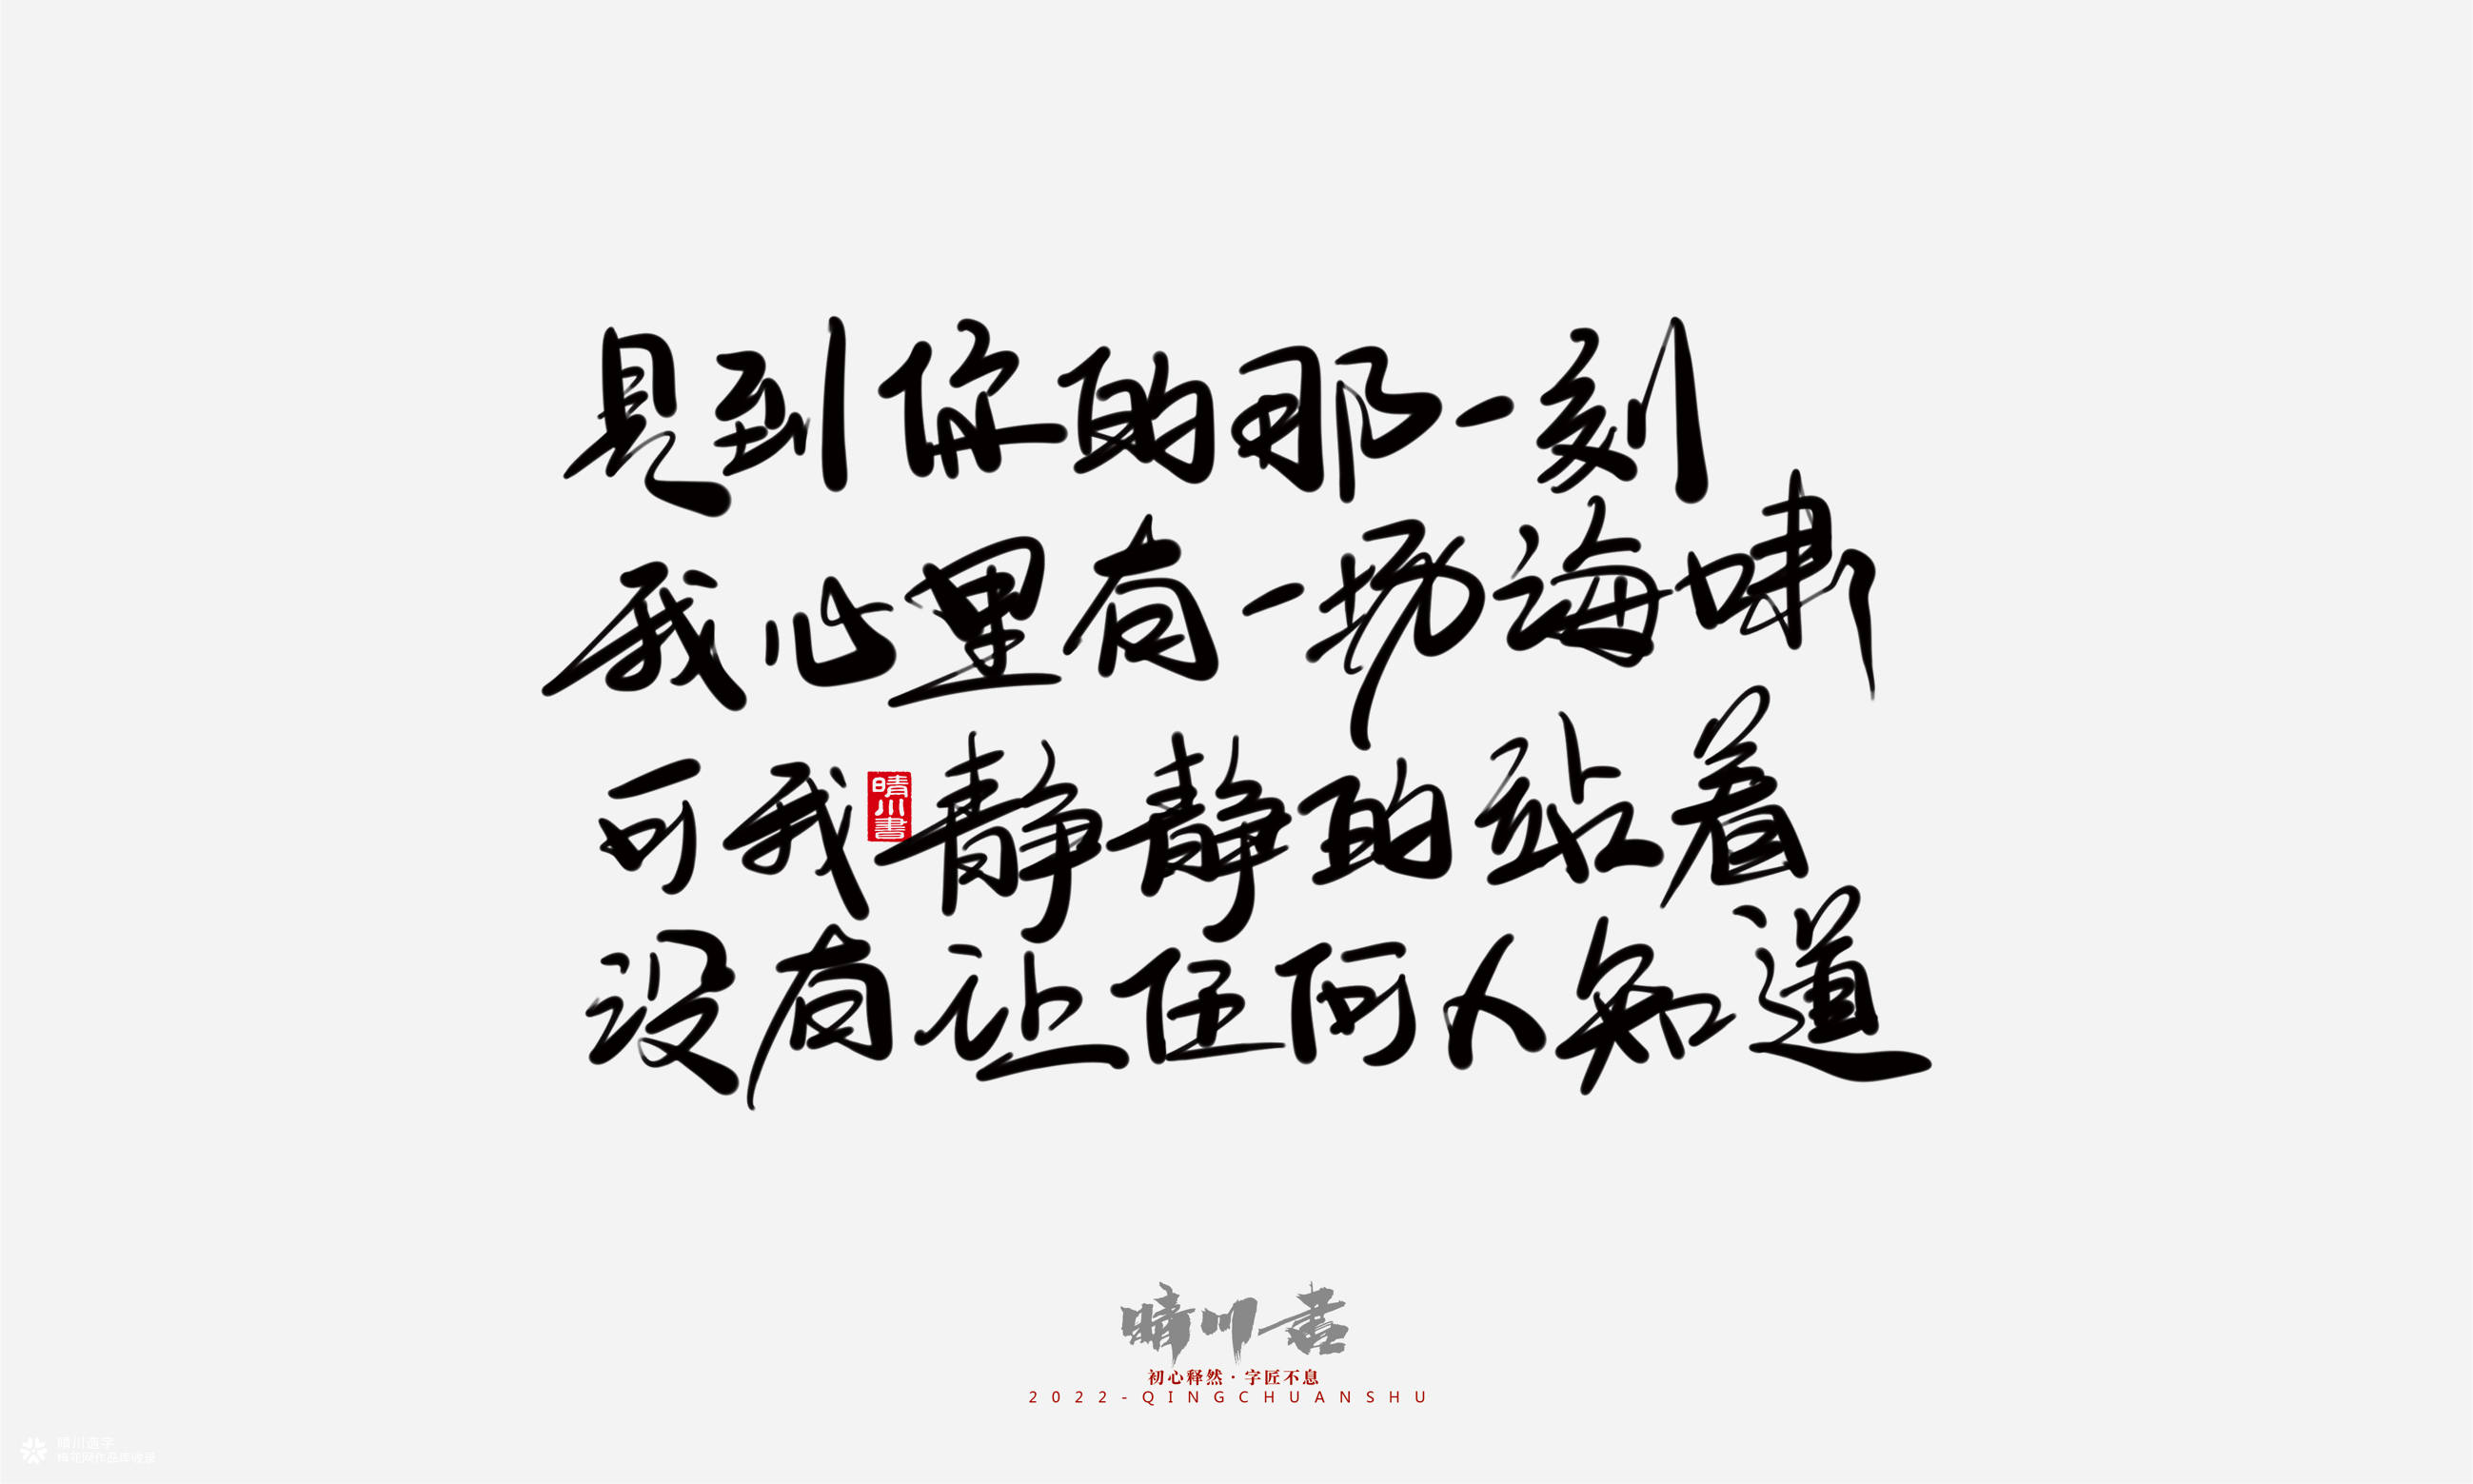 見到你的那一刻
我心里有一场海啸
可我静静的站着
晴川書
没有让任何人知道
晴川書
初心释然·字匠不息
2022-QINGCHUANSHU
晴川造字
梅花网作品库收录